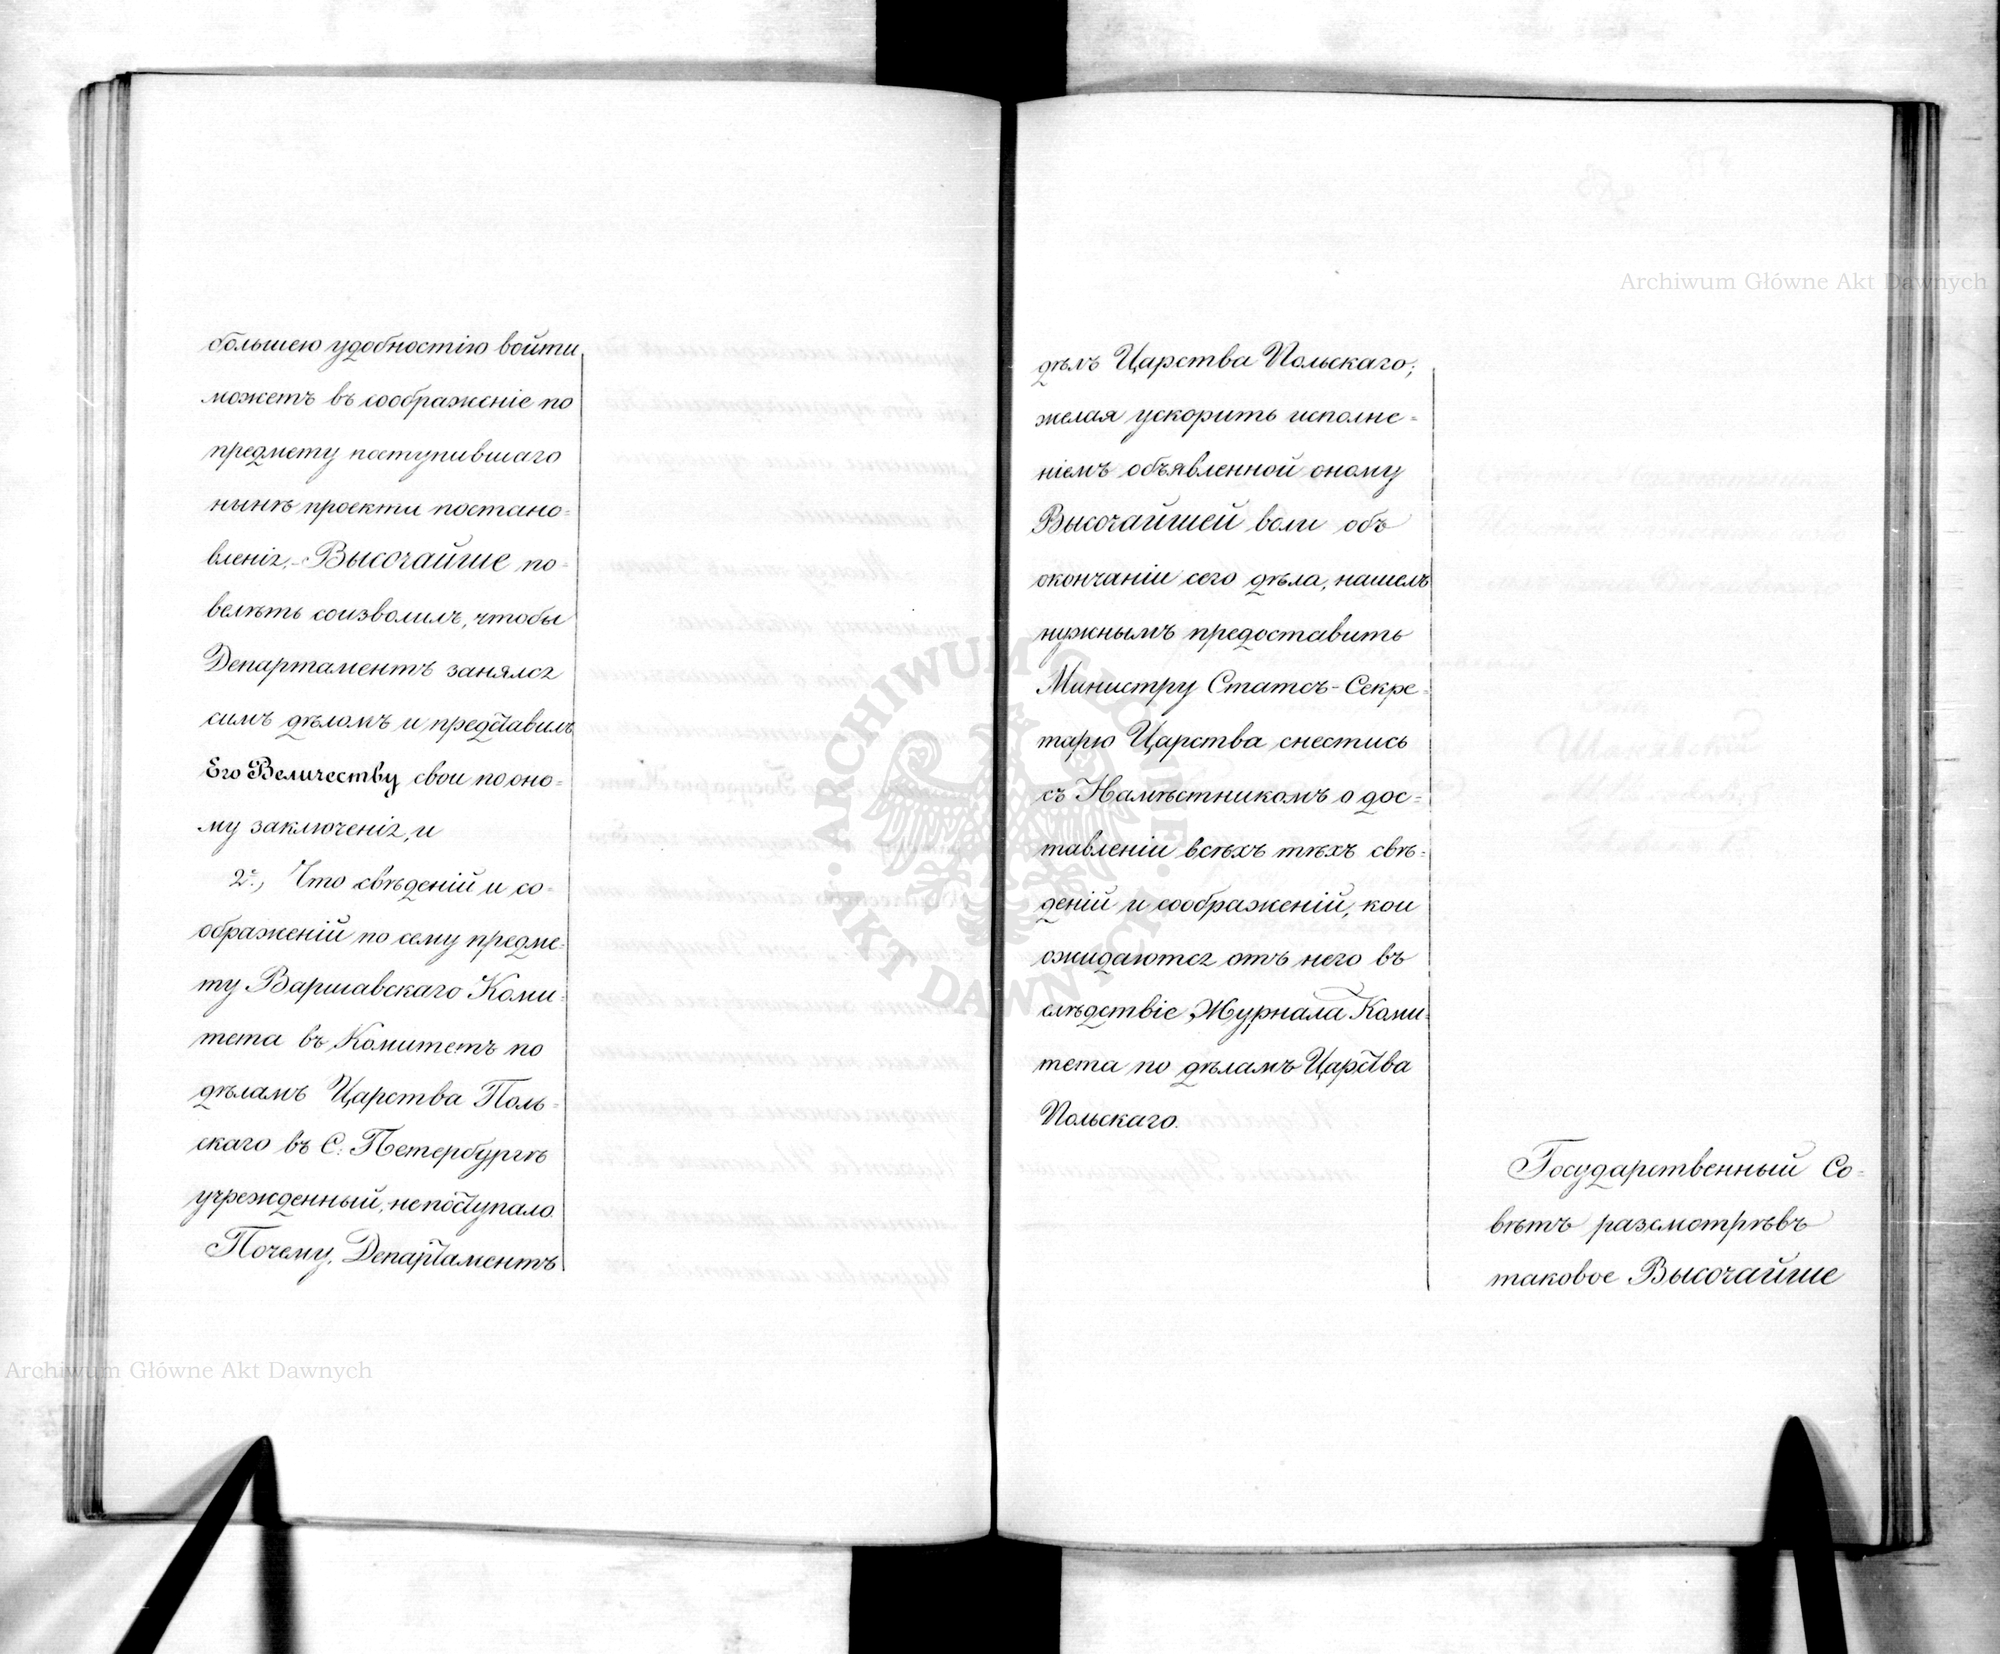 большею удобностію войти
можетъ въ соображеніе по
предмету поступившаго
нынѣ проекти постано=
вленія,- Высочайше по=
велѣть соизволилъ, чтобы
Департаментъ занялся
симъ дѣломъ и представилъ
Его Величеству свои по оно=
му заключенія, и
2е, Что свѣденій и со=
ображеній по сему предме=
ту Варшавскаго Коми=
тета въ Комитетъ по
дѣламъ Царства Поль=
скаго въ С: Петербургѣ
учрежденный, непоступало.
Почему, Департаментъ
дѣлъ Царства Польскаго;
желая ускорить исполне=
ніемъ объявленной оному
Высочайшей воли объ
окончаніи сего дѣла, нашелъ
нужнымъ предоставить
Министру Статсъ-Секре=
тарю Царства, снестись
съ Намѣстникомъ о дос=
тавленіи всѣхъ тѣхъ свѣ=
деній и соображеній, кои
ожидаются отъ него въ
слѣдствіе Журнала Коми=
тета по дѣламъ Царства
Польскаго.
Государственный Со=
вѣтъ разсмотрѣвъ
таковое Высочайше
Archiwum Główne Akt Dawnych
Archiwum Główne Akt Dawnych
ARCHIWUM GŁÓWNE AKT DAWNYCH